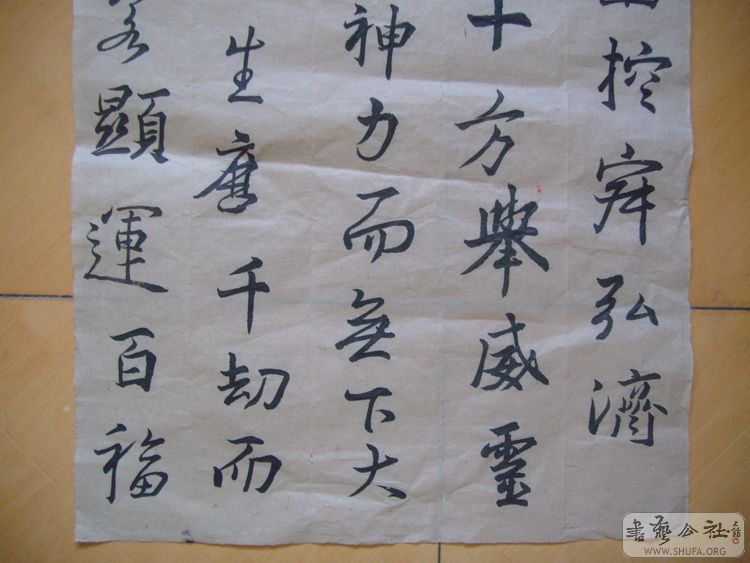 控寂弘濟
十方舉威靈
神力而無下大
生歷千劫而
若顯運百福
書藝公社
WWW.SHUFA.ORG